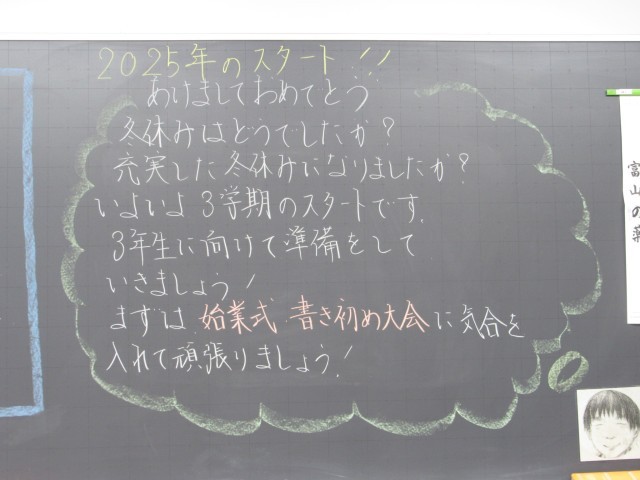 2025年のスタート!!
あけましておめでとう
冬休みはどうでしたか?
充実した冬休みになりましたか?
いよいよ3学期のスタートです.
3年生に向けて準備をして
いきましょう!
まずは 始業式 書き初め大会に気合を
入れて頑張りましょう!
富山の薬